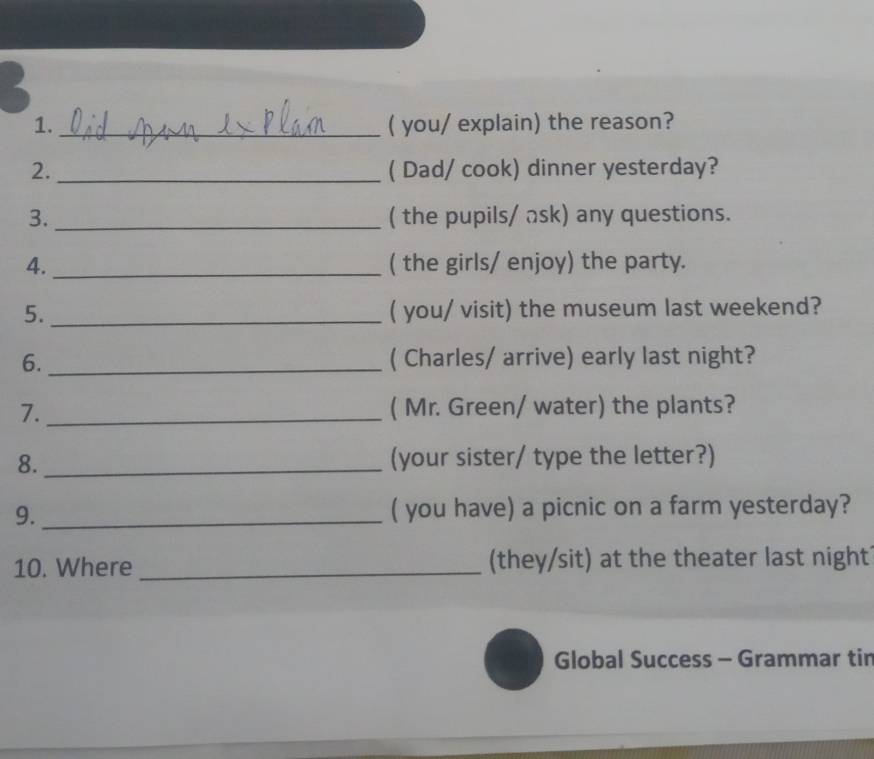 1. Did you explain ( you/ explain) the reason?
2. ________ ( Dad/ cook) dinner yesterday?
3. ________ ( the pupils/ ask) any questions.
4. ________ ( the girls/ enjoy) the party.
5. ________ ( you/ visit) the museum last weekend?
6. ________ ( Charles/ arrive) early last night?
7. ________ ( Mr. Green/ water) the plants?
8. ________ (your sister/ type the letter?)
9. ________ ( you have) a picnic on a farm yesterday?
10. Where ________ (they/sit) at the theater last night?
Global Success – Grammar tim